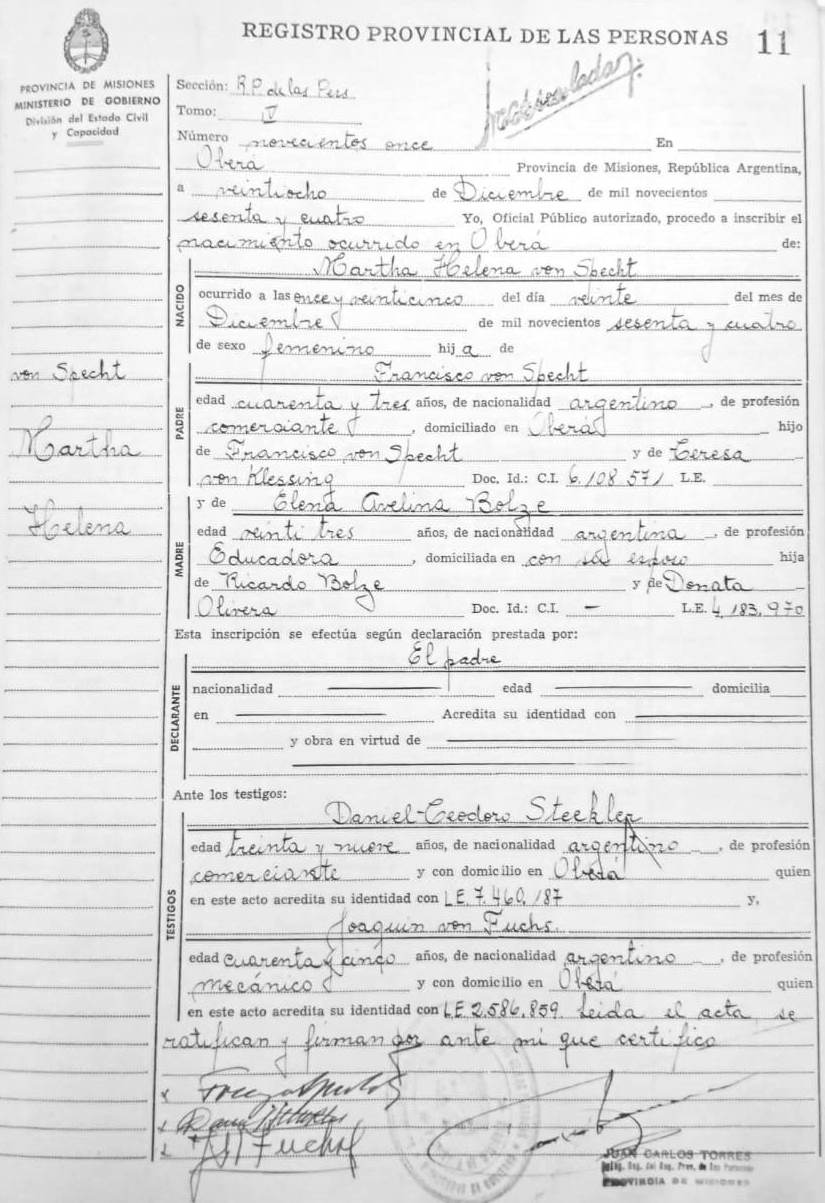 REGISTRO PROVINCIAL DE LAS PERSONAS 11
PROVINCIA DE MISIONES
MINISTERIO DE GOBIERNO
División del Estado Civil
y Capacidad
Sección: R.P. de las Pers
Tomo: IV
Número novecientos once En
Oberá Provincia de Misiones, República Argentina,
a veintiocho de Diciembre de mil novecientos
sesenta y cuatro Yo, Oficial Público autorizado, procedo a inscribir el
nacimiento ocurrido en Oberá de:
NACIDO
Martha Helena von Specht
ocurrido a las once y veinticinco del día veinte del mes de
Diciembre de mil novecientos sesenta y cuatro
de sexo femenino hij a de
von Specht
Martha
Helena
PADRE
Francisco von Specht
edad cuarenta y tres años, de nacionalidad argentino, de profesión
comerciante, domiciliado en Oberá hijo
de Francisco von Specht y de Teresa
von Klessing Doc. Id.: C.I. 6.108.571 L.E.
MADRE
y de Elena Avelina Bolze
edad veinti tres años, de nacionalidad argentina, de profesión
Educadora, domiciliada en con su esposo hija
de Ricardo Bolze y de Donata
Olivera Doc. Id.: C.I. — L.E. 4.183.970
Esta inscripción se efectúa según declaración prestada por:
El padre
DECLARANTE
nacionalidad edad domicilia
en Acredita su identidad con
y obra en virtud de
Ante los testigos:
TESTIGOS
Daniel Teodoro Steckler
edad treinta y nueve años, de nacionalidad argentino, de profesión
comerciante y con domicilio en Oberá quien
en este acto acredita su identidad con L.E. 7.460.187 y,
Joaquin von Fuchs.
edad cuarenta y cinco años, de nacionalidad argentino, de profesión
mecánico y con domicilio en Oberá quien
en este acto acredita su identidad con L.E. 2.586.859. Leida el acta, se
ratifican y firman por ante mi que certifico
JUAN CARLOS TORRES
PROVINCIA DE MISIONES